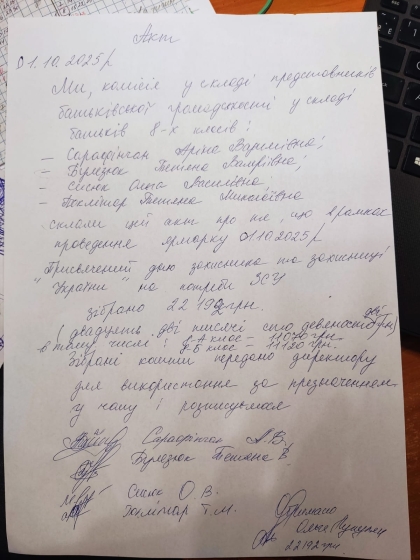 Акт
01.10.2025р
Ми, комісія у складі представників
батьківської громадськості у складі
батьків 8-х класів:
— Сарафінчан Аріна Вадимівна;
— Бірюзюк Тетяна Валеріївна;
— Сисюк Ольга Василівна;
— Тетяна Миколаївна
склали цей акт про те, що в рамках
проведення ярмарку 01.10.2025р
"Присвячений дню захисника та захисниці
України" на потреби ЗСУ
зібрано 22 192 грн.
(двадцять дві тисячі сто девяносто дві грн)
в тому числі: 8-А клас – 11070 грн.
8-Б клас – 11120 грн.
Зібрані кошти передано директору
для використання за призначенням
у чому і розписуємося
Сарафінчан А.В.
Бірюзюк Тетяна В.
Сисюк О.В.
Т.М.
Отримано
Ольга
22192 грн